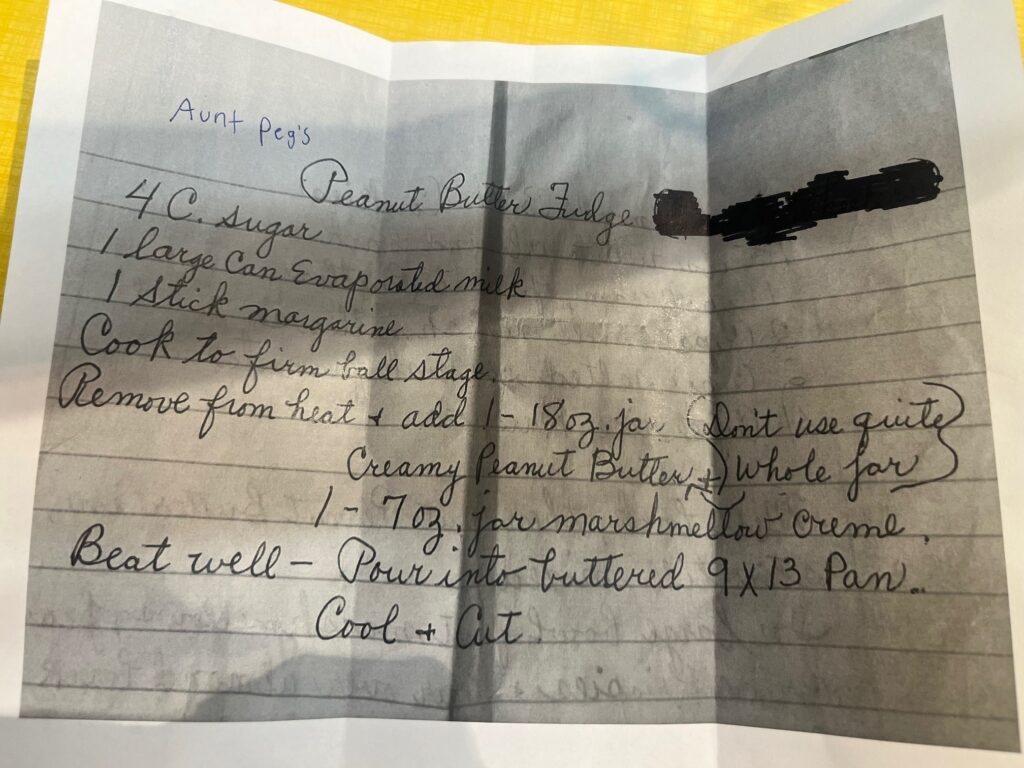 Aunt Peg's
Peanut Butter Fudge
4 C. sugar
1 large Can Evaporated milk
1 Stick margarine
Cook to firm ball stage.
Remove from heat + add 1 - 18 oz. jar (Don't use quite
Creamy Peanut Butter, +) Whole jar)
1 - 7 oz. jar marshmellow Creme.
Beat well - Pour into buttered 9 x 13 Pan..
Cool + Cut.